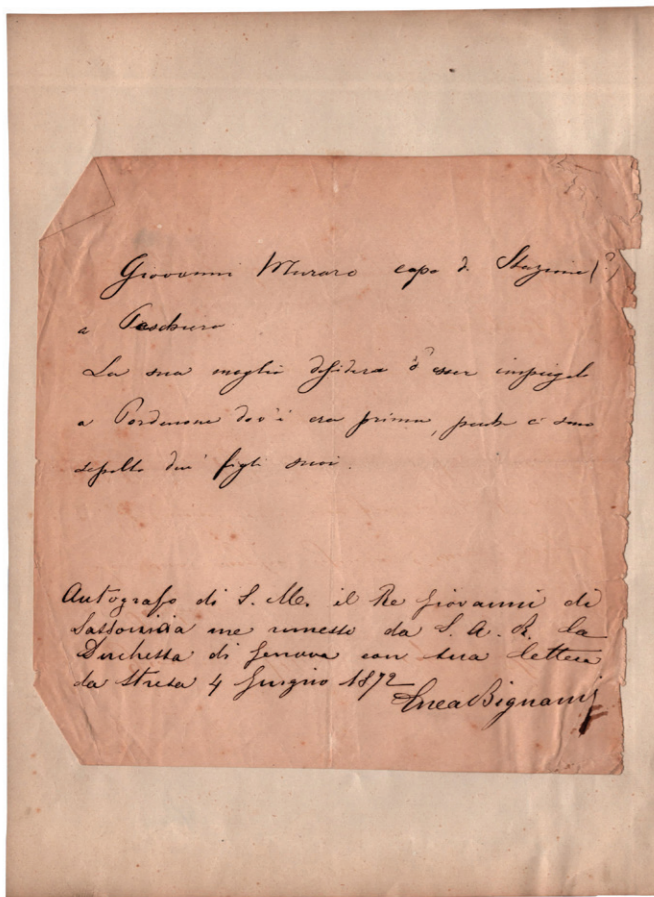 Giovanni Muraro capo di Stazione (?)
a Peschiera
La sua moglie desidera d'esser impiegato
a Pordenone dov'è era prima, perche ci sono
sepolte due figli suoi.
Autografo di S. M. il Re Giovanni di
Sassonia me rimesso da S. A. R. la
Duchessa di Genova con sua lettera
da Stresa 4 Giugno 1872
Enea Bignami